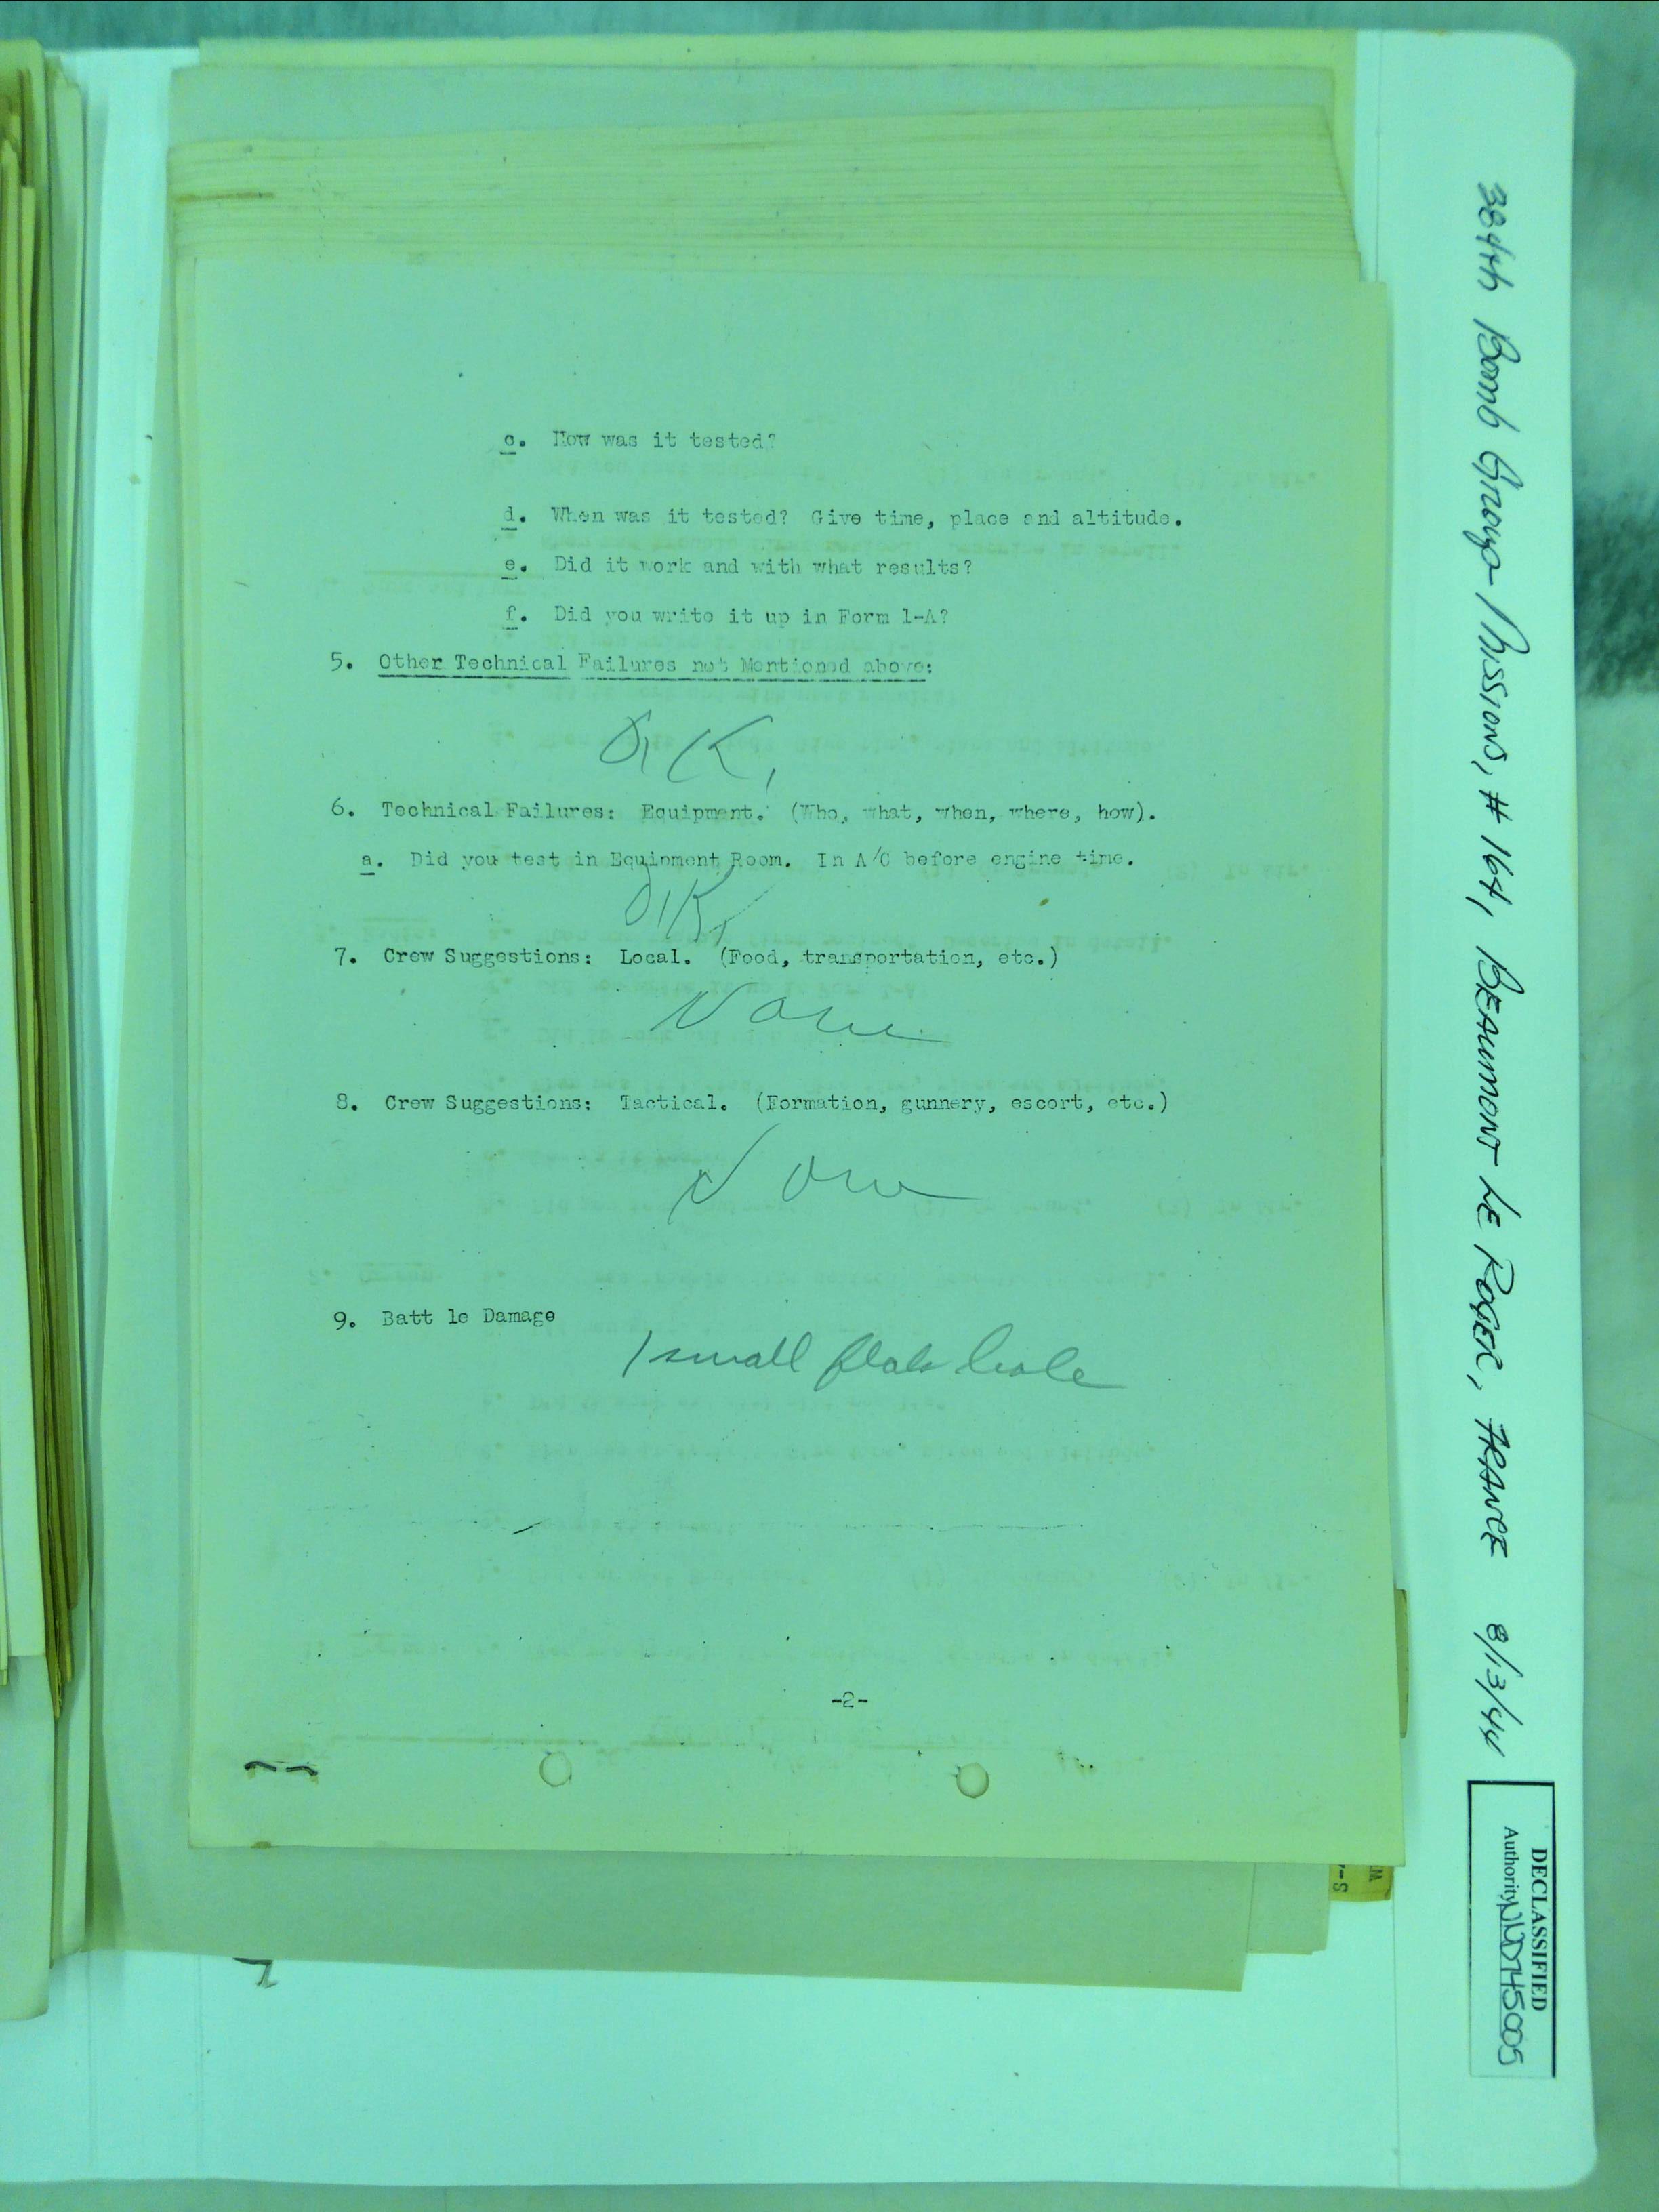 c. How was it tested?
d. When was it tested? Give time, place and altitude.
e. Did it work and with what results?
f. Did you write it up in Form 1-A?
5. Other Technical Failures not Mentioned above:
O.K.
6. Technical Failures: Equipment. (Who, what, when, where, how).
a. Did you test in Equipment Room. In A/C before engine time.
O.K.
7. Crew Suggestions: Local. (Food, transportation, etc.)
None
8. Crew Suggestions: Tactical. (Formation, gunnery, escort, etc.)
None
9. Batt le Damage
1 small flak hole
-2-
384th Bomb Group Missions, # 164, BEAUMONT LE ROGER, FRANCE 8/13/44
DECLASSIFIED
Authority NND745005